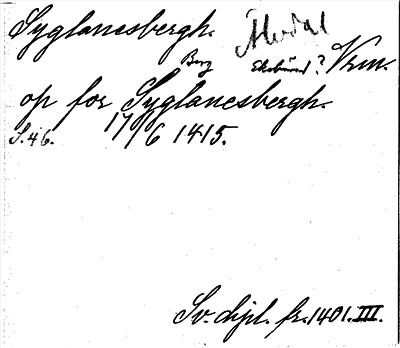 Syglanesbergh. Älvdal
Berg Ekshärad? Vrm.
op for Syglanesbergh.
S. 46. 17/6 1415.
Sv. dipl. fr. 1401. III.